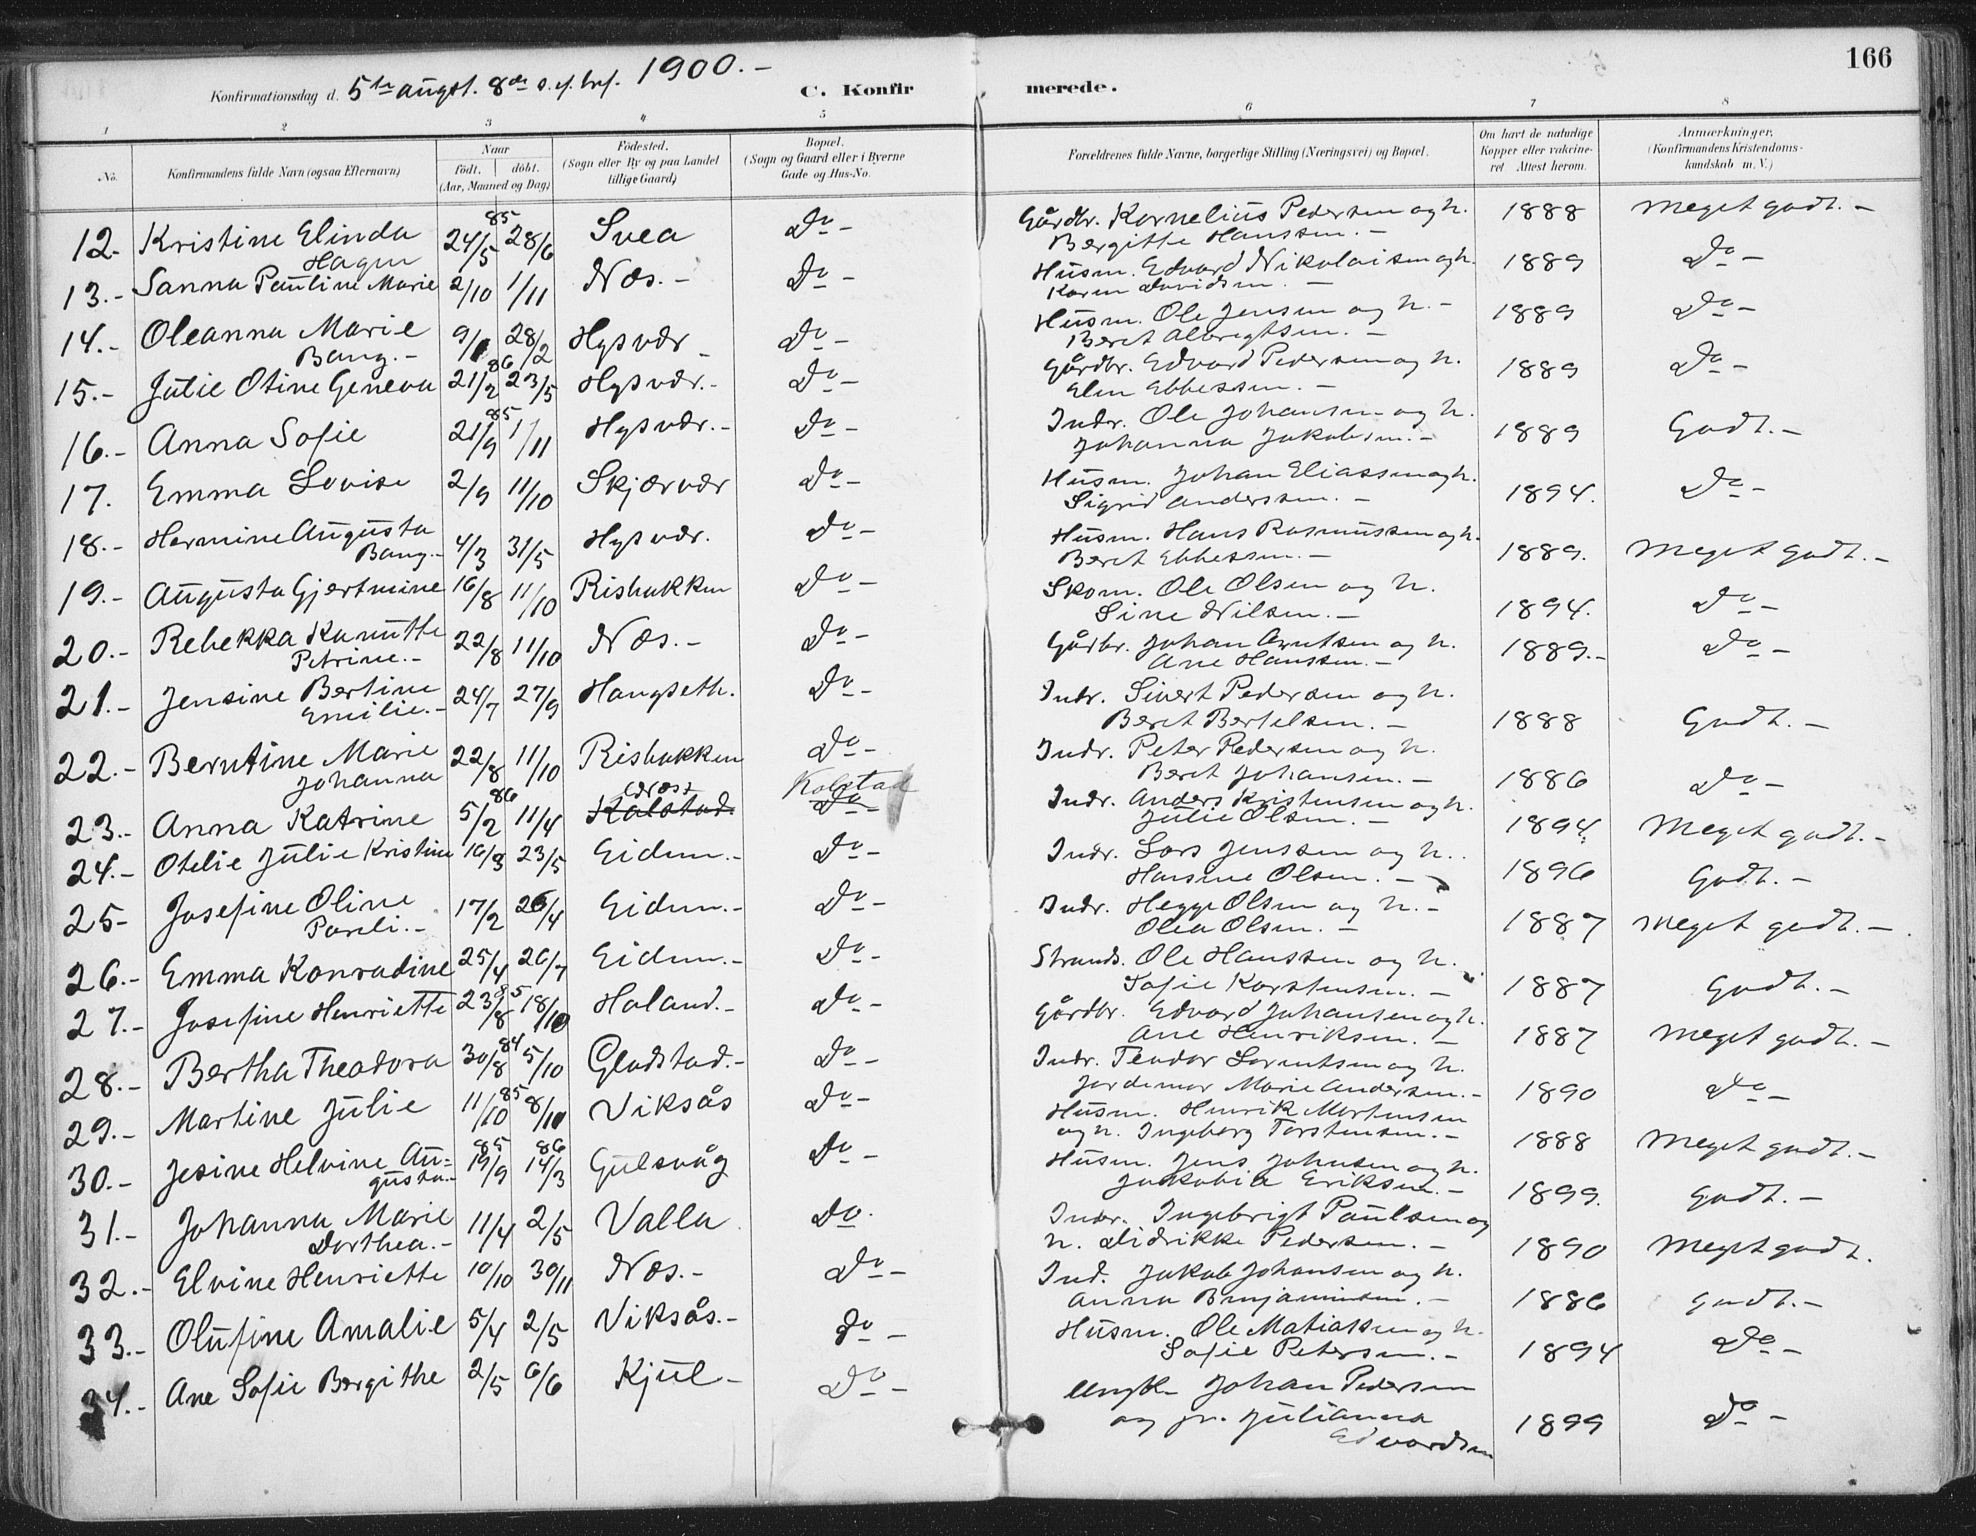 166
Konfirmationsdag d. 5te augst. 8de s. ef. 1900.-
C. Konfirmerede.
1 2 3 4 5 6 7 8
No. Konfirmandens fulde Navn (ogsaa Efternavn) Naar født. døbt. (Aar, Maaned og Dag) Födested. (Sogn eller By og paa Landet tillige Gaard) Bopæl. (Sogn og Gaard eller i Byerne Gade og Hus-No. Forældrenes fulde Navne, borgerlige Stilling (Næringsvei) og Bopæl. Om havt de naturlige Kopper eller vakcineret Attest herom. Anmærkninger, (Konfirmandens Kristendomskundskab m. V.)
12.- Kristine Elinda Hagen 24/5 85 28/6 Svea Do- Gårdbr. Kornelius Pedersen og h. Bergitte Hanssen.- 1888 Meget godt.-
13.- Sanna Pauline Marie 2/10 1/11 Næs.- Do- Husm. Edvard Nikolaisen og h. Karen Davidsen.- 1889 Do-
14.- Oleanna Marie Bang.- 9/1 28/2 Hysvær- Do- Husm. Ole Jensen og h.- Beret Albregtsen.- 1889 Do-
15.- Julie Otine Geneva 21/2 86 23/5 Hysvær.- Do- Gårdbr. Edvard Pedersen og h. Elen Ebbessen.- 1889 Do-
16.- Anna Sofie 21/9 85 1/11 Hysvær.- Do- Indr. Ole Johansen og h. Johanna Jakobsen.- 1889 Godt.-
17. Emma Lovise 2/9 11/10 Skjærvær Do- Husm. Johan Eliassen og h. Sigrid Anderssen.- 1894. Do-
18.- Hermine Augusta Bang.- 4/3 31/5 Hysvær. Do- Husm. Hans Rasmussen og h. Beret Ebbessen.- 1889. Meget godt.-
19.- Augusta Gjertmine 16/8 11/10 Rishakken Do- Skom. Ole Olsen og h. Sine Nilsen.- 1894. Do-
20.- Rebekka Kanutte Petrine.- 22/8 11/10 Næs.- Do- Gårbr. Johan Arntsen og h. Ane Hanssen.- 1889.- Do-
21.- Jensine Bertine Emilie.- 24/7 27/9 Haugseth. Do- Indr. Sivert Pedersen og h. Beret Bertelsen.- 1888 Godt.-
22.- Berntine Marie Johanna 22/8 11/10 Rishakken Do- Indr. Peter Pedersen og h. Beret Johansen.- 1886 Do-
23.- Anna Katrine 5/2 86 11/4 Næs Kalstad. Kolstad Do- Indr. Anders Kristensen og h. Julie Olsen.- 1894. Meget godt.-
24.- Otelie Julie Kristine 16/3 23/5 Eidem.- Do- Indr. Lars Jenssen og h.. Hansine Olsen.- 1896 Godt.-
25- Josefine Oline Pareli.- 17/2 26/4 Eidem.- Do- Indr. Hegge Olsen og h.- Olea Olsen.- 1887 Meget godt.-
26.- Emma Konradine 25/4 26/7 Eidem.- Do- Strands. Ole Hanssen og h. Sofie Karstensen.- 1887 Godt.-
27.- Josefine Henriette 23/8 85 18/10 Holand.- Do- Gårdbr. Edvard Johansen og h. Ane Henriksen.- 1887 Meget godt.-
28.- Bertha Theodora 30/8 84 5/10 Gladstad.- Do- Indr. Teodor Lorentsen og h. Jordemor Marie Andersen.- 1890 Do-
29.- Martine Julie 11/10 85 8/11 Viksås Do- Husm. Henrik Mortensen og h. Ingeborg Torstensen.- 1888 Meget godt.-
30.- Jesine Helvine Augusta.- 19/9 85 14/3 86 Gulsvåg Do- Husm. Jens Johnsen og h. Jakobia Eriksen.- 1899. godt.-
31.- Johanna Marie Dorthea.- 11/4 2/5 Valla Do. Indr. Ingebrigt Paulsen og h. Didrikke Pedersen.- 1890 Meget godt.
32.- Elvine Henriette 10/10 30/11 Næs.- Do- Ind. Jakob Johansen og h. Anna Benjaminsen.- 1886 godt.-
33.- Olufine Amalie 5/4 2/5 Viksås.- Do- Husm. Ole Matiassen og h. Sofie Petersen.- 1894 Do-
34.- Ane Sofie Bergithe 2/5 6/6 Kjul- Do- Ungk- Johan Pedersen og p. Julianna Edvardsen 1899 Do-